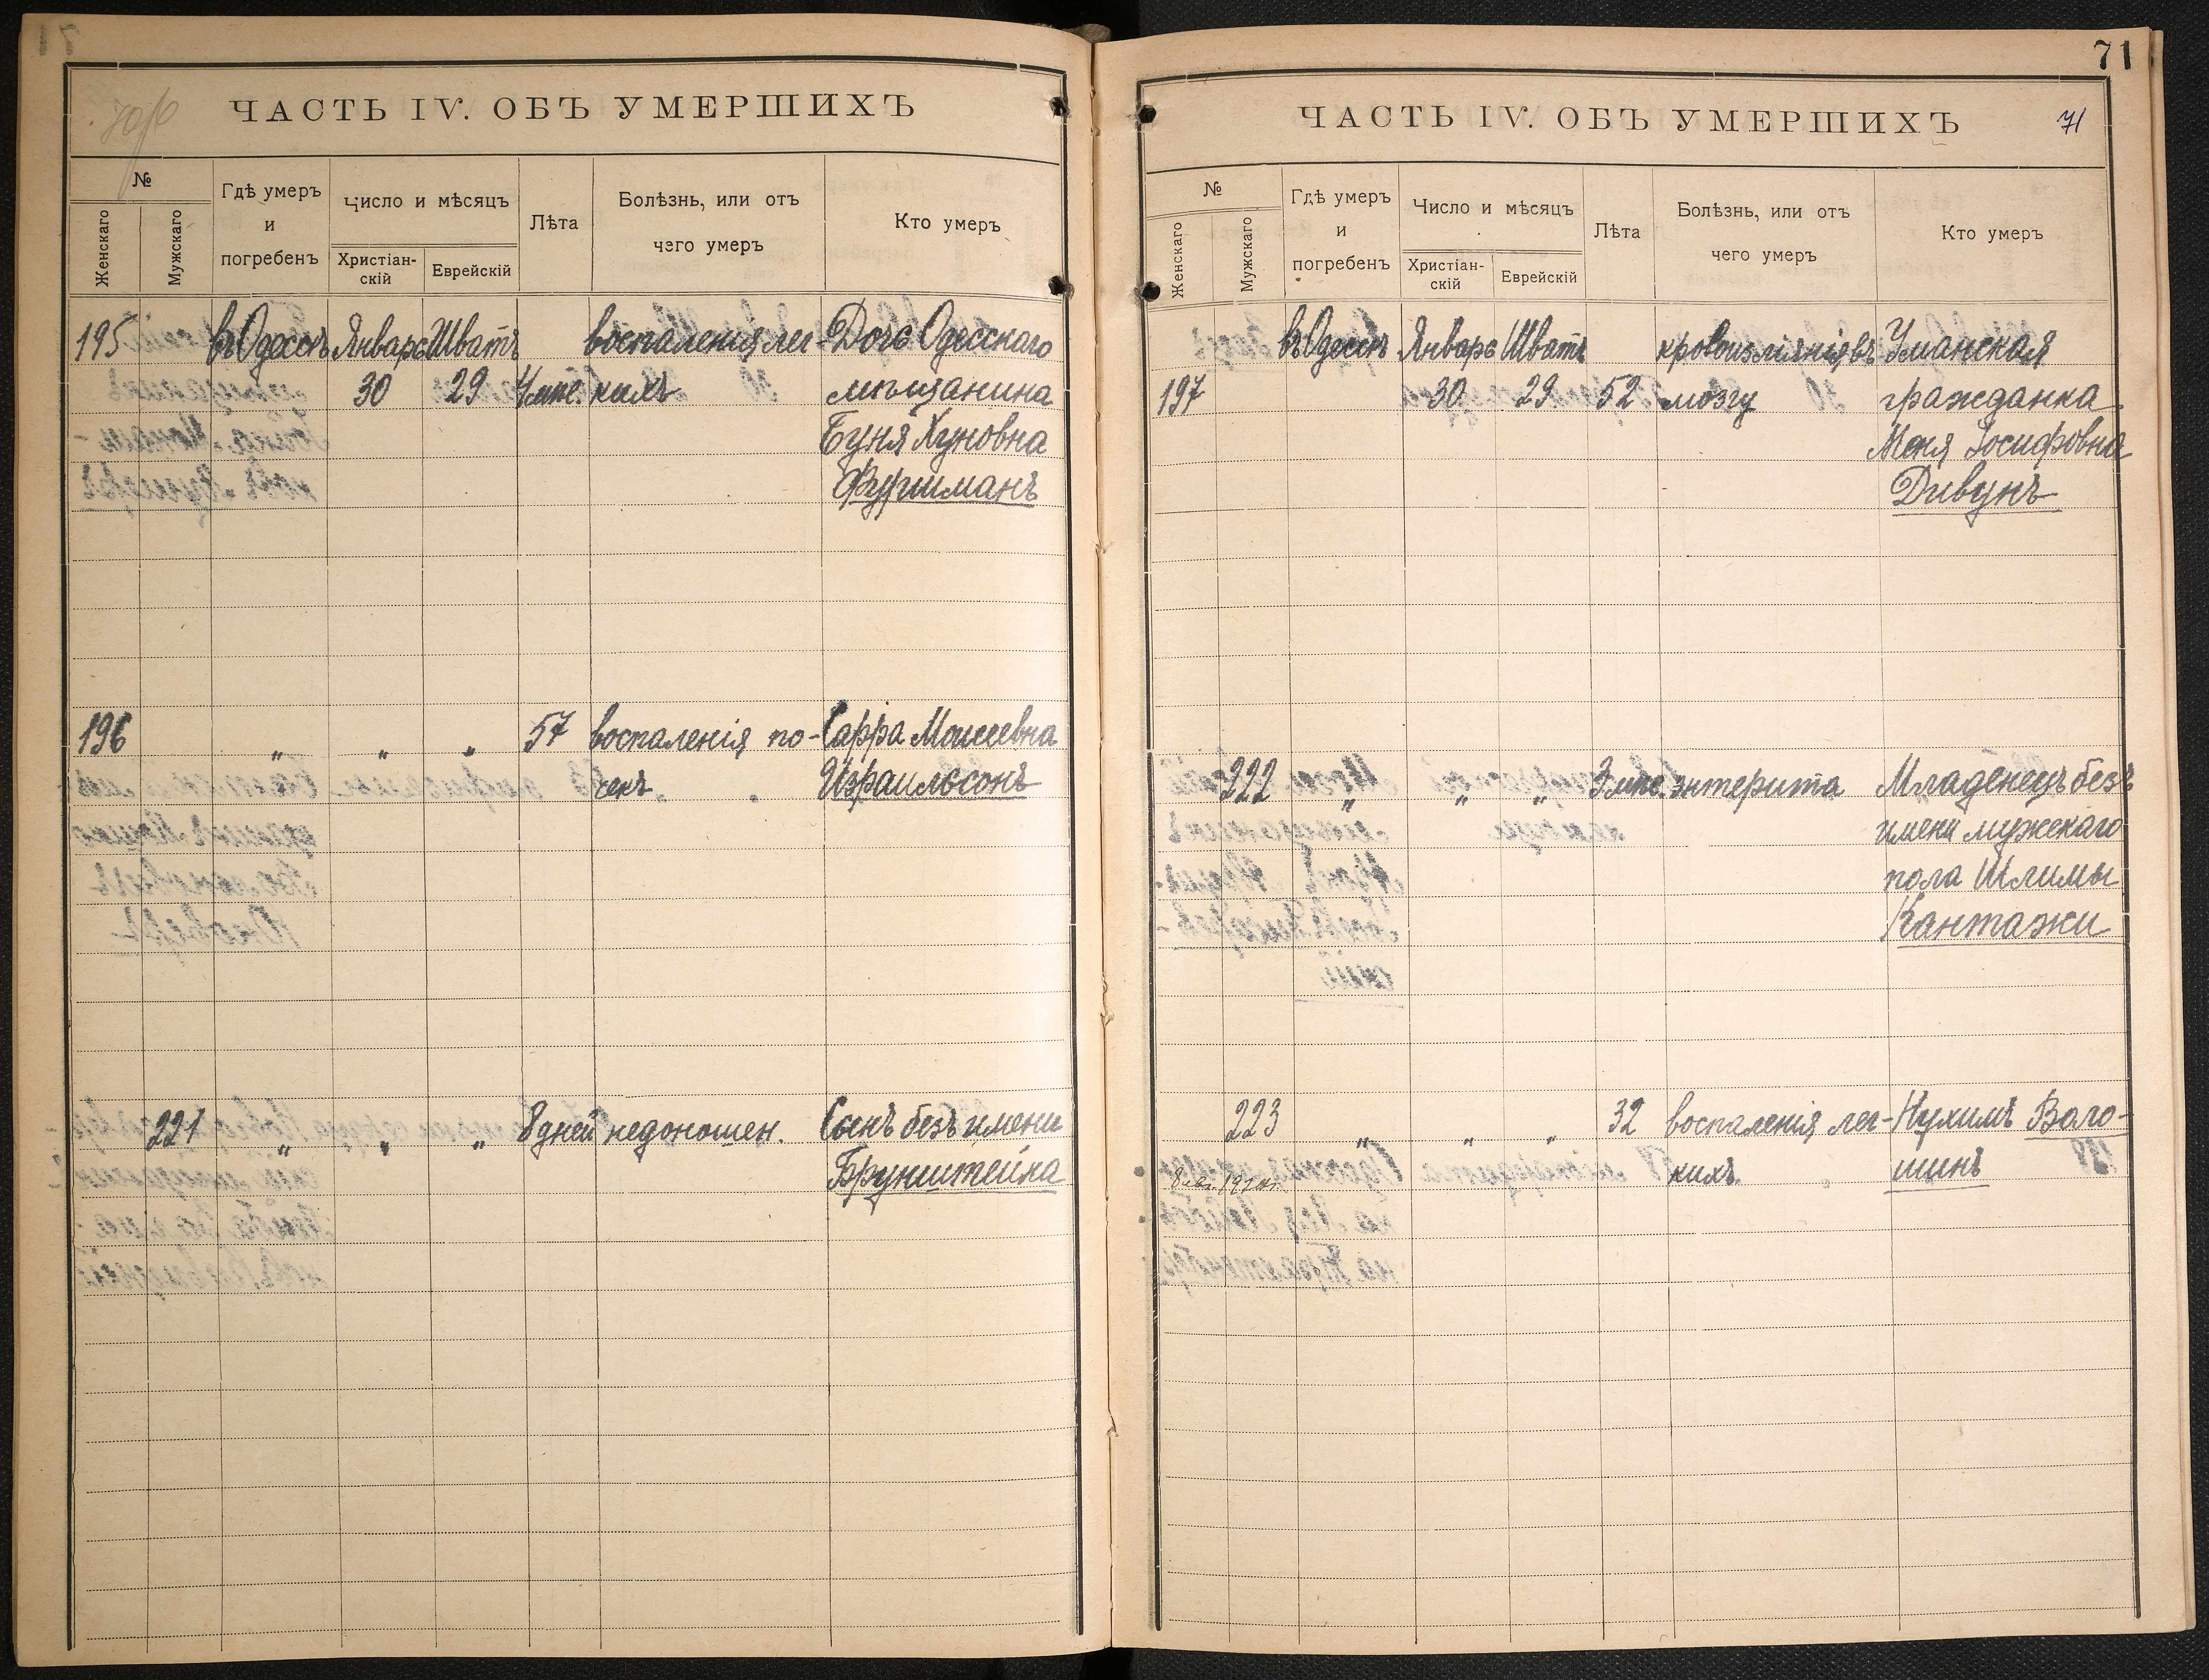 71
ЧАСТЬ IV. ОБЪ УМЕРШИХЪ
№
Женскаго
Мужскаго
Гдѣ умеръ
и
погребенъ
Число и мѣсяцъ
Христіан-
скій
Еврейскій
Лѣта
Болѣзнь, или отъ
чего умеръ
Кто умеръ
195 въ Одессѣ Январь Шватъ воспаленія лег- Дочь Одесскаго
30 29 кихъ мѣщанина
Буня Хуновна
Фурманъ
196 „ „ „ 57 воспаленія по- Сарра Моисеевна
чекъ Израильсонъ
221 „ „ „ 8 дней недоношен. Сынъ безъ имени
Брунштейна
ЧАСТЬ IV. ОБЪ УМЕРШИХЪ
71
№
Женскаго
Мужскаго
Гдѣ умеръ
и
погребенъ
Число и мѣсяцъ
Христіан-
скій
Еврейскій
Лѣта
Болѣзнь, или отъ
чего умеръ
Кто умеръ
въ Одессѣ Январь Шватъ кровоизліянія въ Уманская
197 30 29 52 мозгу гражданка
Меня Іосифовна
Дивунъ
222 „ „ „ 3 мѣс. энтерита Младенецъ безъ
имени мужскаго
пола Шлимы
Кантажи
223 „ „ „ 32 воспаленія лег- Нухимъ Воло-
кихъ. шинъ